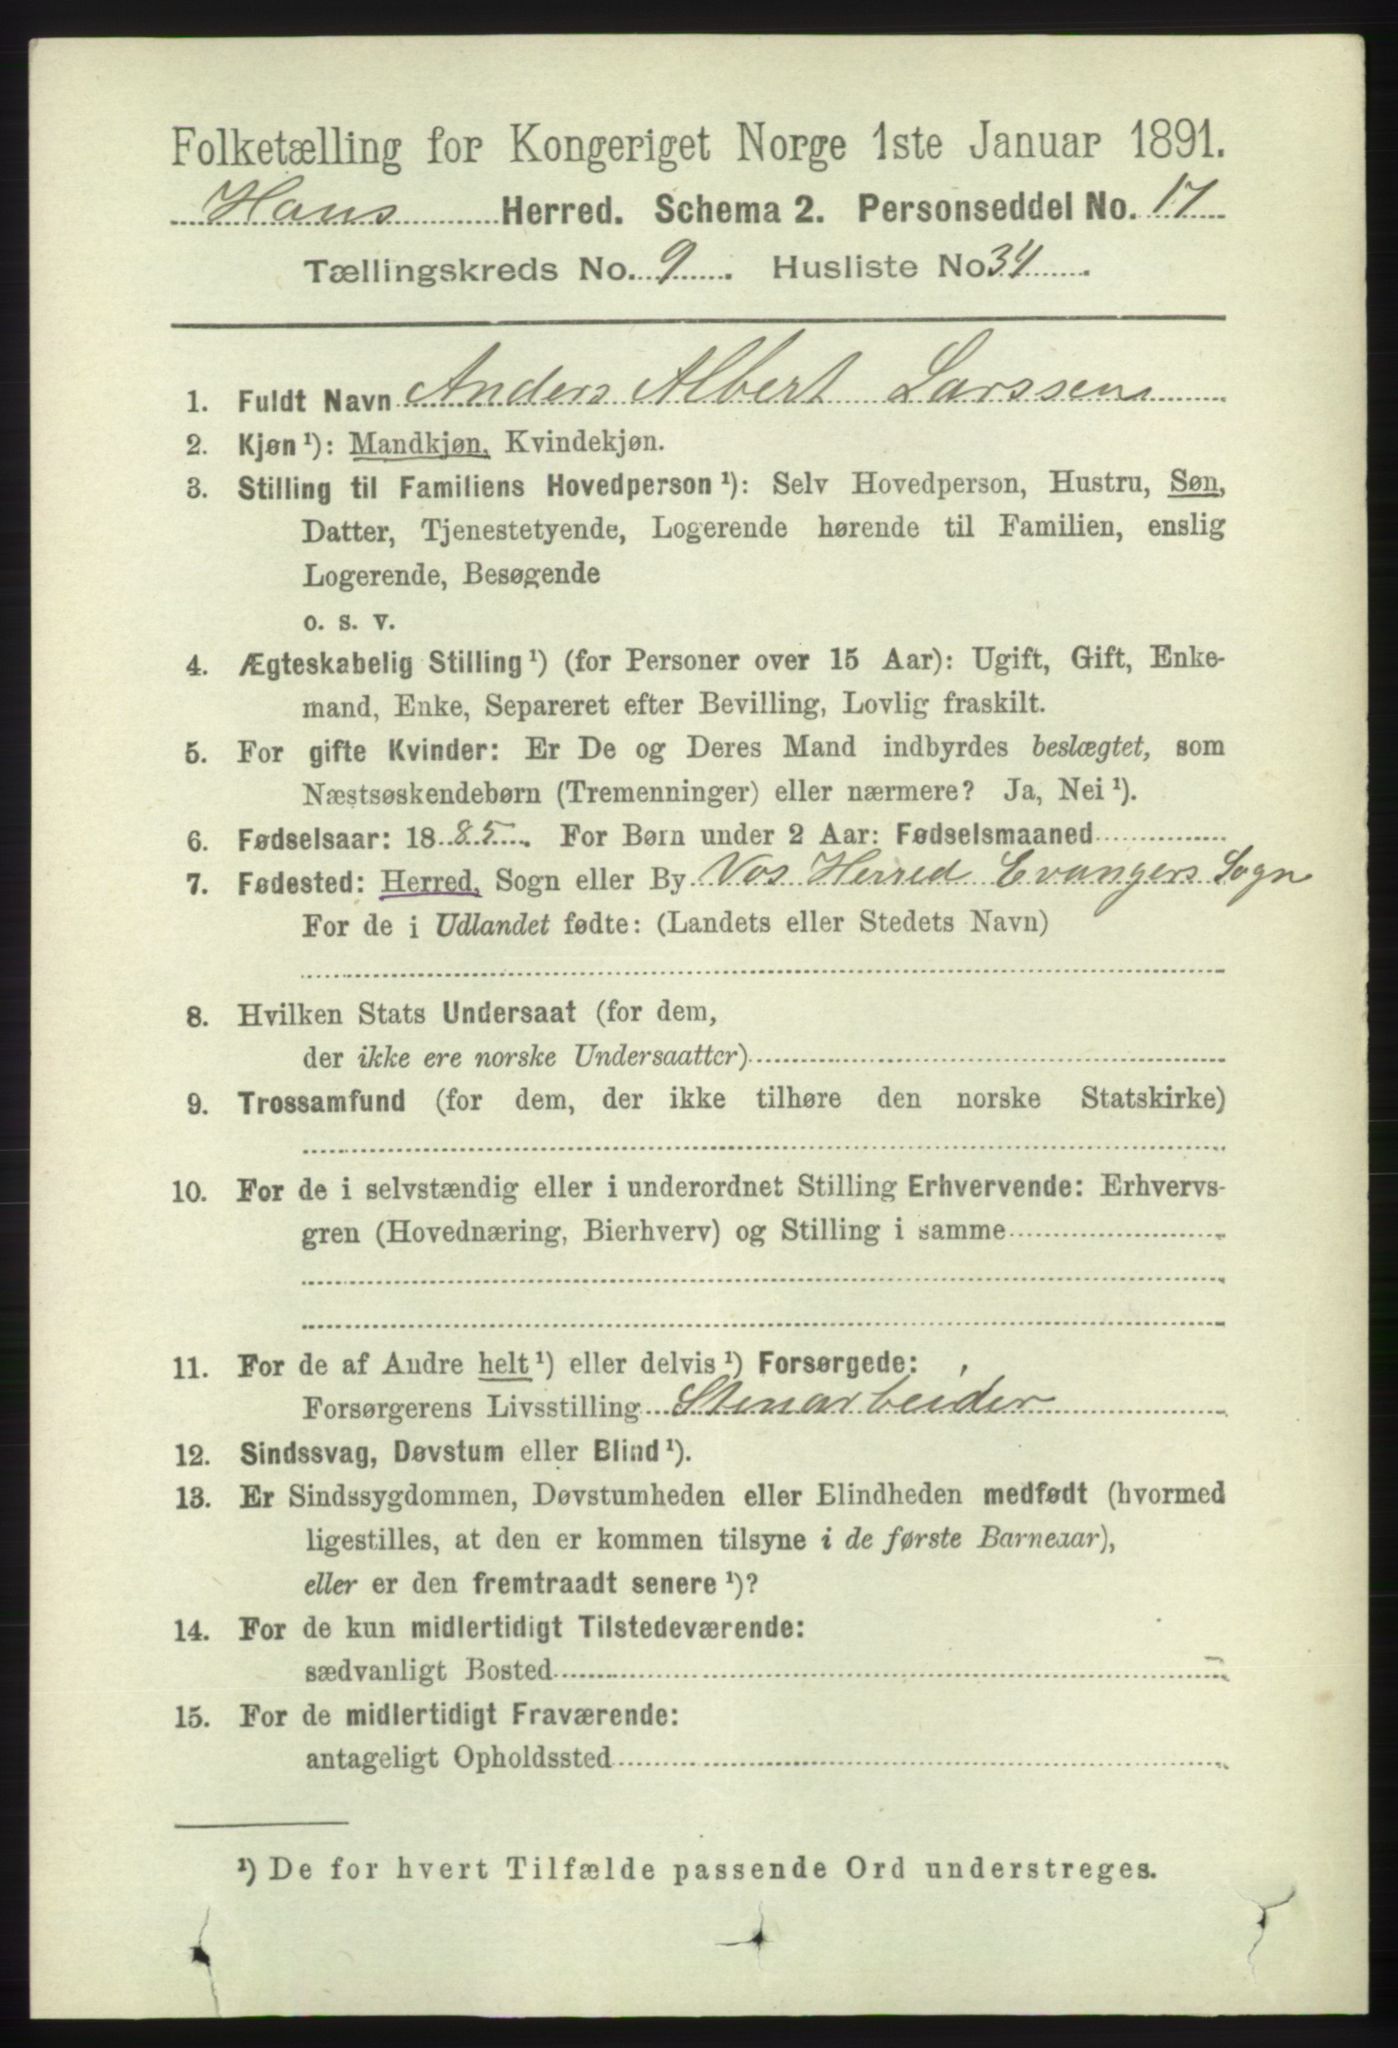 Folketælling for Kongeriget Norge 1ste Januar 1891.
Haus Herred. Schema 2. Personseddel No. 17
Tællingskreds No. 9. Husliste No 34.
1. Fuldt Navn Anders Albert Larssen
2. Kjøn¹): Mandkjøn, Kvindekjøn.
3. Stilling til Familiens Hovedperson¹): Selv Hovedperson, Hustru, Søn,
Datter, Tjenestetyende, Logerende hørende til Familien, enslig
Logerende, Besøgende
o. s. v.
4. Ægteskabelig Stilling¹) (for Personer over 15 Aar): Ugift, Gift, Enke-
mand, Enke, Separeret efter Bevilling, Lovlig fraskilt.
5. For gifte Kvinder: Er De og Deres Mand indbyrdes beslægtet, som
Næstsøskendebørn (Tremenninger) eller nærmere? Ja, Nei¹).
6. Fødselsaar: 1885. For Børn under 2 Aar: Fødselsmaaned
7. Fødested: Herred, Sogn eller By Vos Herred Evangers Sogn
For de i Udlandet fødte: (Landets eller Stedets Navn)
8. Hvilken Stats Undersaat (for dem,
der ikke ere norske Undersaatter)
9. Trossamfund (for dem, der ikke tilhøre den norske Statskirke)
10. For de i selvstændig eller i underordnet Stilling Erhvervende: Erhvervs-
gren (Hovednæring, Bierhverv) og Stilling i samme
11. For de af Andre helt¹) eller delvis¹) Forsørgede:
Forsørgerens Livsstilling Stenarbeider
12. Sindssvag, Døvstum eller Blind¹).
13. Er Sindssygdommen, Døvstumheden eller Blindheden medfødt (hvormed
ligestilles, at den er kommen tilsyne i de første Barneaar),
eller er den fremtraadt senere¹)?
14. For de kun midlertidigt Tilstedeværende:
sædvanligt Bosted
15. For de midlertidigt Fraværende:
antageligt Opholdssted
¹) De for hvert Tilfælde passende Ord understreges.